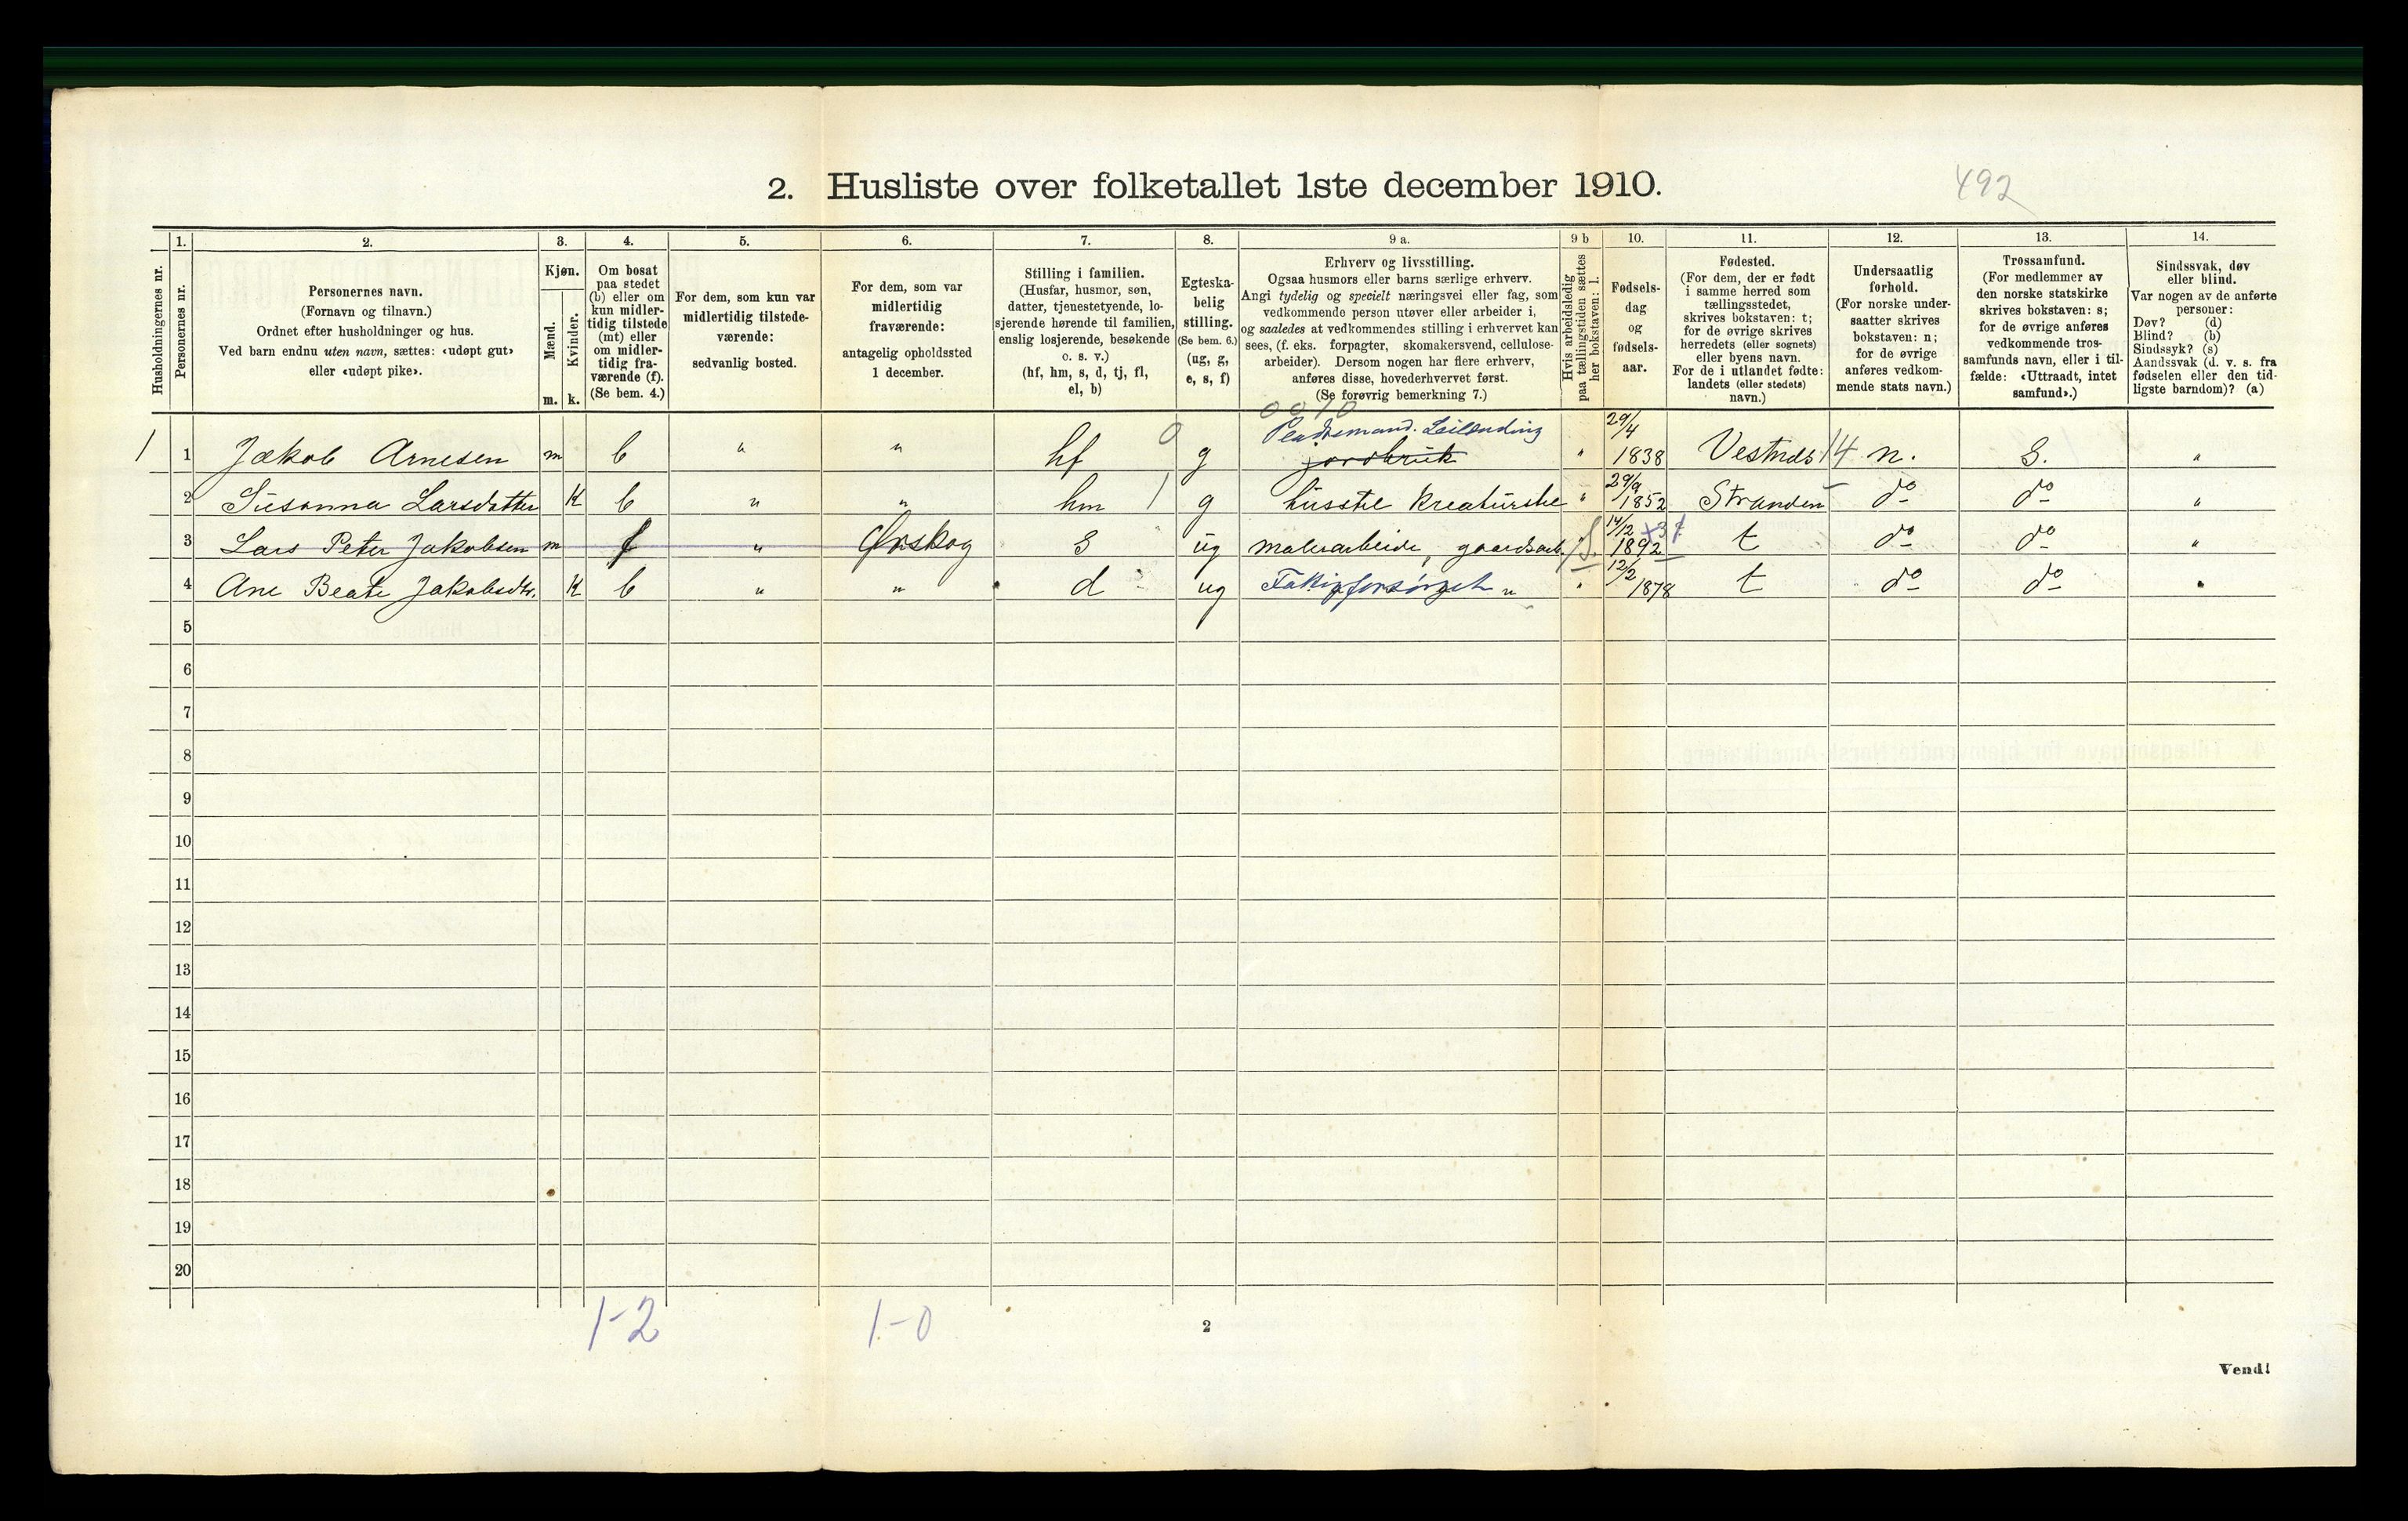 492
2. Husliste over folketallet 1ste december 1910.
Husholdningernes nr.
1.
Personernes nr.
2.
Personernes navn.
(Fornavn og tilnavn.)
Ordnet efter husholdninger og hus.
Ved barn endnu uten navn, sættes: «udøpt gut»
eller «udøpt pike».
3.
Kjøn.
Mænd.
Kvinder.
m. k.
4.
Om bosat
paa stedet
(b) eller om
kun midler-
tidig tilstede
(mt) eller
om midler-
tidig fra-
værende (f).
(Se bem. 4.)
5.
For dem, som kun var
midlertidig tilstede-
værende:
sedvanlig bosted.
6.
For dem, som var
midlertidig
fraværende:
antagelig opholdssted
1 december.
7.
Stilling i familien.
(Husfar, husmor, søn,
datter, tjenestetyende, lo-
sjerende hørende til familien,
enslig losjerende, besøkende
o. s. v.)
(hf, hm, s, d, tj, fl,
el, b)
8.
Egteska-
belig
stilling.
(Se bem. 6.)
(ug, g,
e, s, f)
9 a.
Erhverv og livsstilling.
Ogsaa husmors eller barns særlige erhverv.
Angi tydelig og specielt næringsvei eller fag, som
vedkommende person utøver eller arbeider i,
og saaledes at vedkommendes stilling i erhvervet kan
sees, (f. eks. forpagter, skomakersvend, cellulose-
arbeider). Dersom nogen har flere erhverv,
anføres disse, hovederhvervet først.
(Se forøvrig bemerkning 7.)
9 b
Hvis arbeidsledig
paa tællingstiden sættes
her bokstaven: l.
10.
Fødsels-
dag
og
fødsels-
aar.
11.
Fødested.
(For dem, der er født
i samme herred som
tællingsstedet,
skrives bokstaven: t;
for de øvrige skrives
herredets (eller sognets)
eller byens navn.
For de i utlandet fødte:
landets (eller stedets)
navn.)
12.
Undersaatlig
forhold.
(For norske under-
saatter skrives
bokstaven: n;
for de øvrige
anføres vedkom-
mende stats navn.)
13.
Trossamfund.
(For medlemmer av
den norske statskirke
skrives bokstaven: s;
for de øvrige anføres
vedkommende tros-
samfunds navn, eller i til-
fælde: «Uttraadt, intet
samfund».)
14.
Sindssvak, døv
eller blind.
Var nogen av de anførte
personer:
Døv? (d)
Blind? (b)
Sindssyk? (s)
Aandssvak (d. v. s. fra
fødselen eller den tid-
ligste barndom)? (a)
0 0 7 0
Pladsmand. Leilending
1 1 Jakob Arnesen m b " " hf 0 g jordbruk " 29/4 1838 Vestnes 14 n. S. "
2 Susanna Larsdatter K b " " hm 1 g husstel kreaturstel " 29/9 1852 Stranden do do "
3 Lars Peter Jakobsen m f " Ørskog S ug malerarbeide, gaardsarb. 14/12 1892 t do do "
4 Ane Beate Jakobsdtr. K b " " d ug Fattigforsørget " " 12/2 1878 t do do "
5
6
7
8
9
10
11
12
13
14
15
16
17
18
19
20
1-2 1-0
2
Vend!